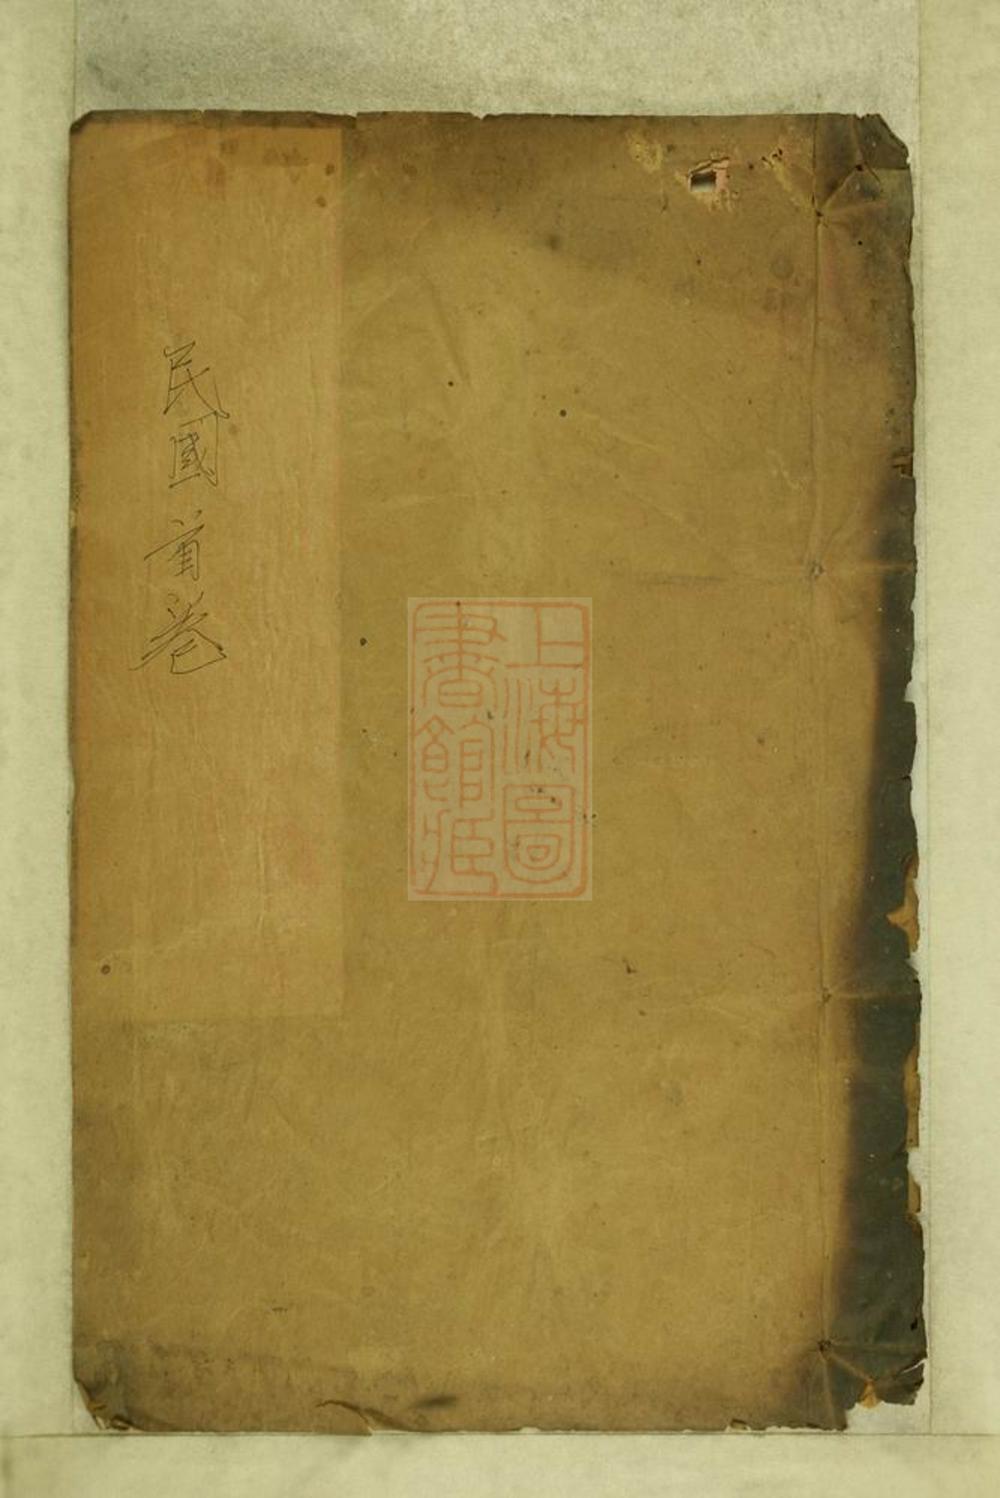 民國首卷
上海圖
書館藏